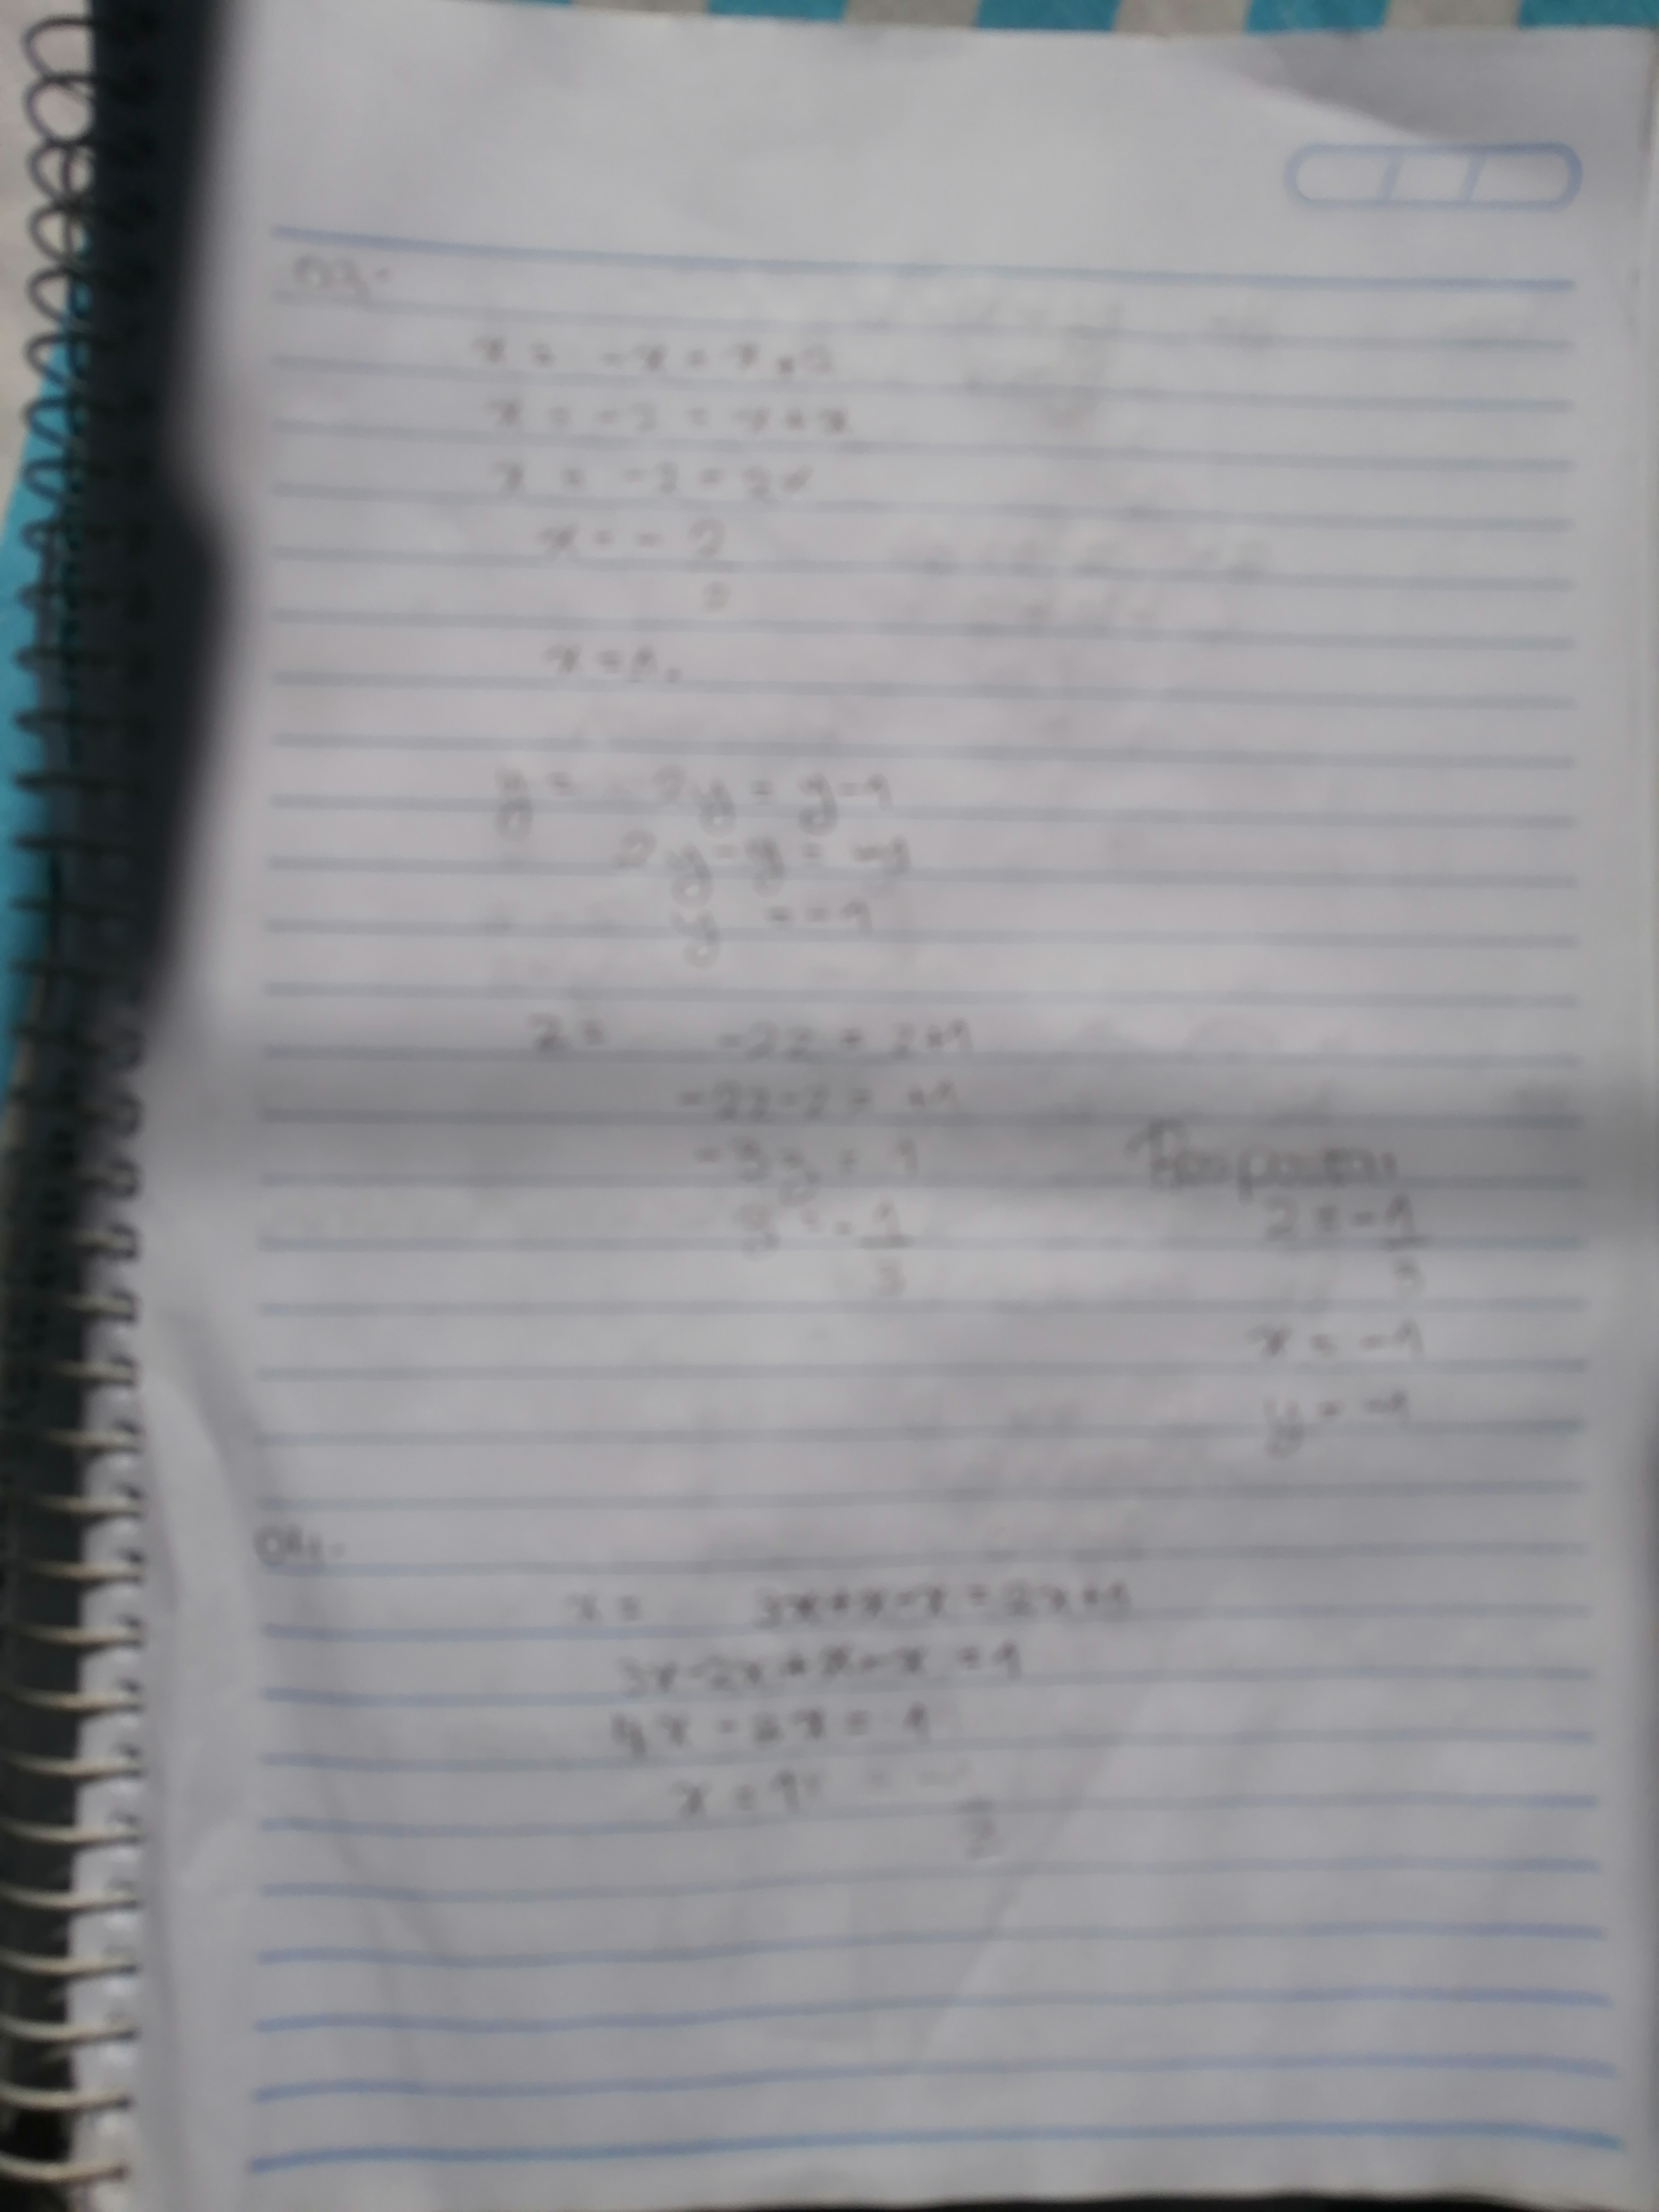 03-
x = -x = x+2
x = -2 = x+x
x = -2 = 2x
x = - 2
2
x = 1.
y = 2y = y-1
2y-y = -y
y = -1
z = -2z = z+1
-2z-z = +1
-3z = 1
z = - 1
3
Resposta
z = -1
3
x = -1
y = -1
04-
x = 3x+x-x = 2x+1
3x-2x+x-x = 1
4x - 2x = 1
x = 1
2